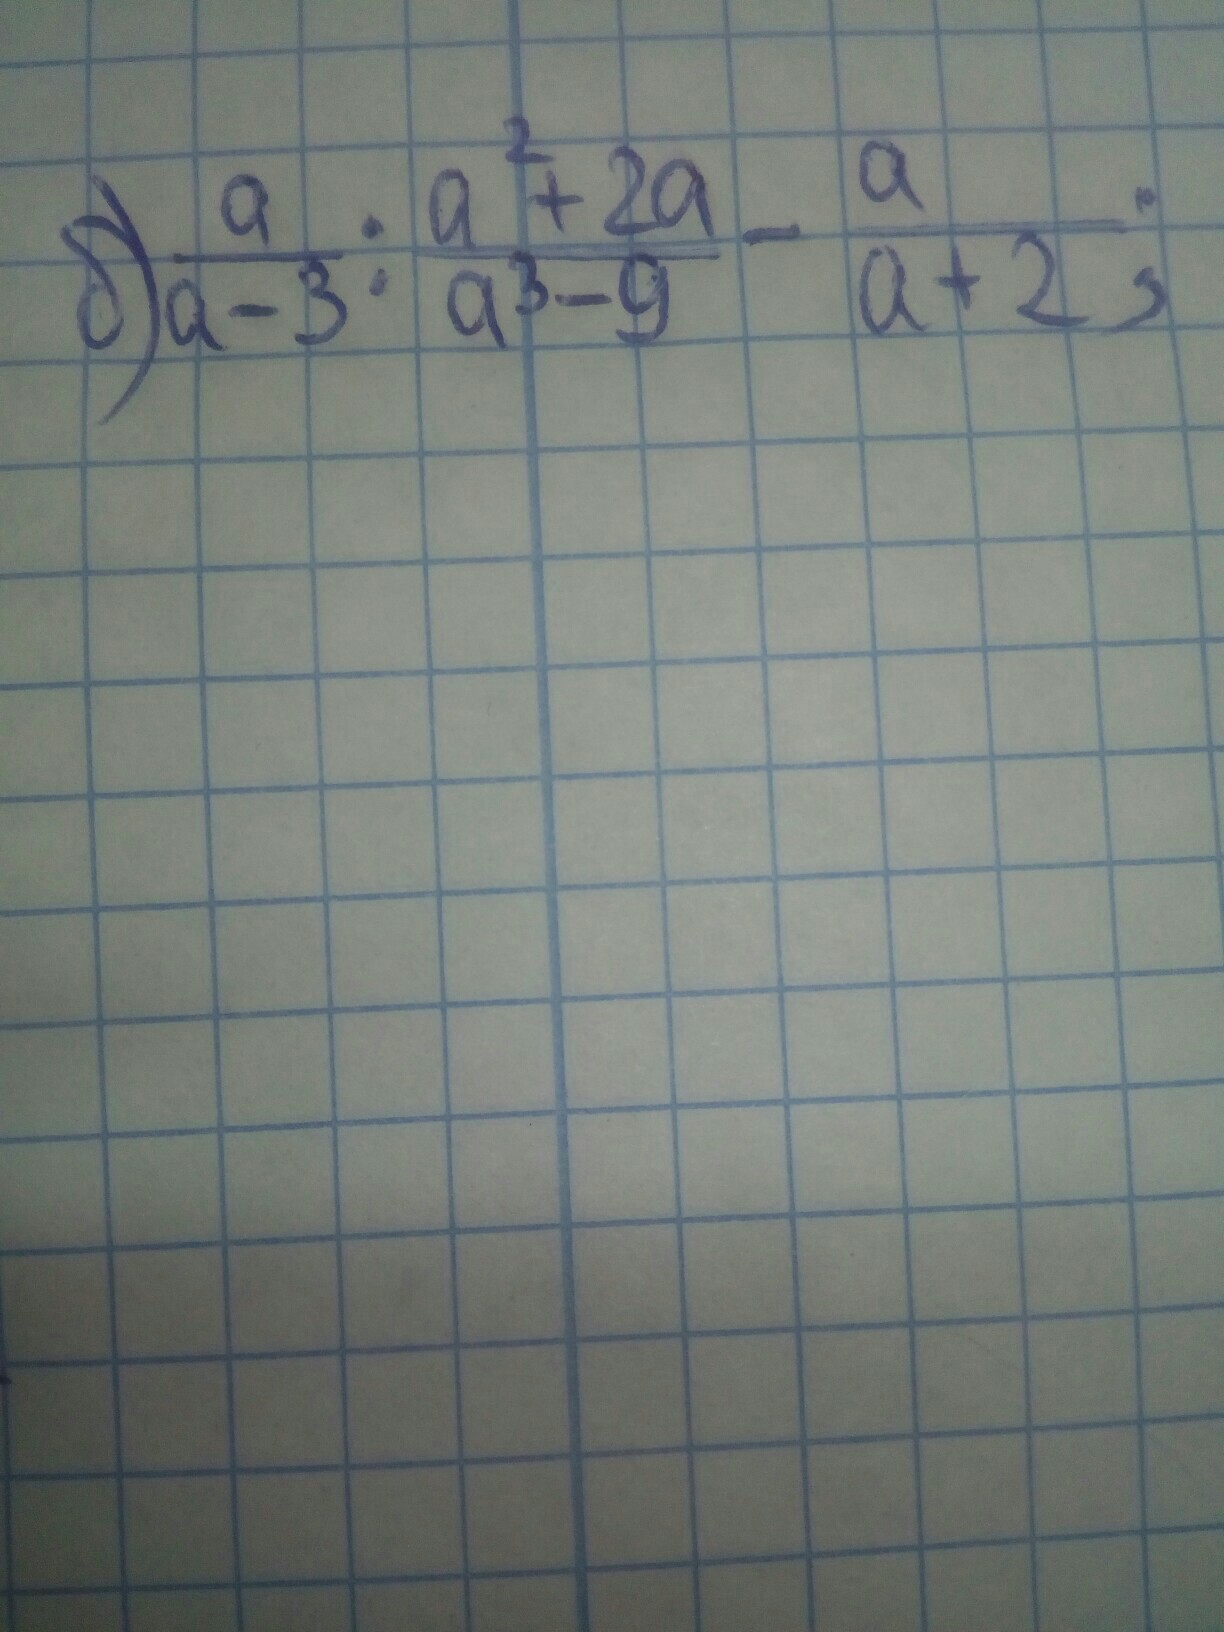 б) a/(a-3) : (a²+2a)/(a³-9) - a/(a+2);